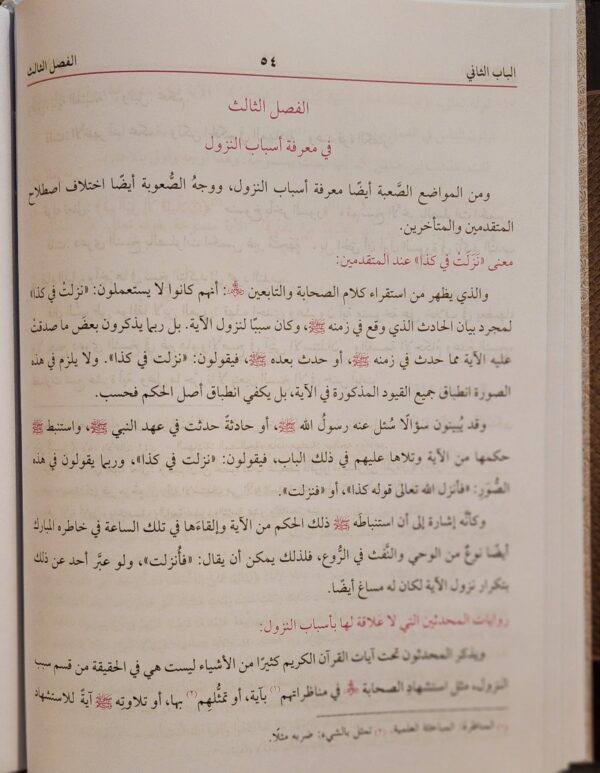 الباب الثاني ٥٤ الفصل الثالث
الفصل الثالث
في معرفة أسباب النزول
ومن المواضع الصَّعبة أيضًا معرفة أسباب النزول، ووجهُ الصُّعوبة أيضًا اختلاف اصطلاح
المتقدمين والمتأخرين.
معنى «نَزَلَتْ في كذا» عند المتقدمين:
والذي يظهر من استقراء كلام الصحابة والتابعين ﷺ: أنهم كانوا لا يستعملون: «نزلتْ في كذا»
لمجرد بيان الحادث الذي وقع في زمنه ﷺ، وكان سببًا لنزول الآية. بل ربما يذكرون بعضَ ما صدقتْ
عليه الآية مما حدث في زمنه ﷺ، أو حدث بعده ﷺ، فيقولون: «نزلت في كذا». ولا يلزم في هذه
الصورة انطباق جميع القيود المذكورة في الآية، بل يكفي انطباق أصل الحكم فحسب.
وقد يُبينون سؤالًا سُئل عنه رسولُ الله ﷺ، أو حادثةً حدثت في عهد النبي ﷺ، واستنبط ﷺ
حكمها من الآية وتلاها عليهم في ذلك الباب، فيقولون: «نزلت في كذا»، وربما يقولون في هذه
الصُّوَر: «فأنزل الله تعالى قوله كذا»، أو «فنزلت».
وكأنّه إشارة إلى أن استنباطَه ﷺ ذلك الحكم من الآية وإلقاءَها في تلك الساعة في خاطره المبارك
أيضًا نوعٌ من الوحي والنَّفث في الرُّوع، فلذلك يمكن أن يقال: «فأُنزلت»، ولو عبَّر أحد عن ذلك
بتكرار نزول الآية لكان له مساغ أيضًا.
روايات المحدثين التي لا علاقة لها بأسباب النزول:
ويذكر المحدثون تحت آيات القرآن الكريم كثيرًا من الأشياء ليست هي في الحقيقة من قسم سبب
النزول، مثل استشهادِ الصحابة في مناظراتهم(١) بآية، أو تمثُّلِهم(٢) بها، أو تلاوتِه ﷺ آيةً للاستشهاد
(١) المناظرة: المباحثة العلمية. (٢) تمثل بالشيء: ضربه مثلًا.